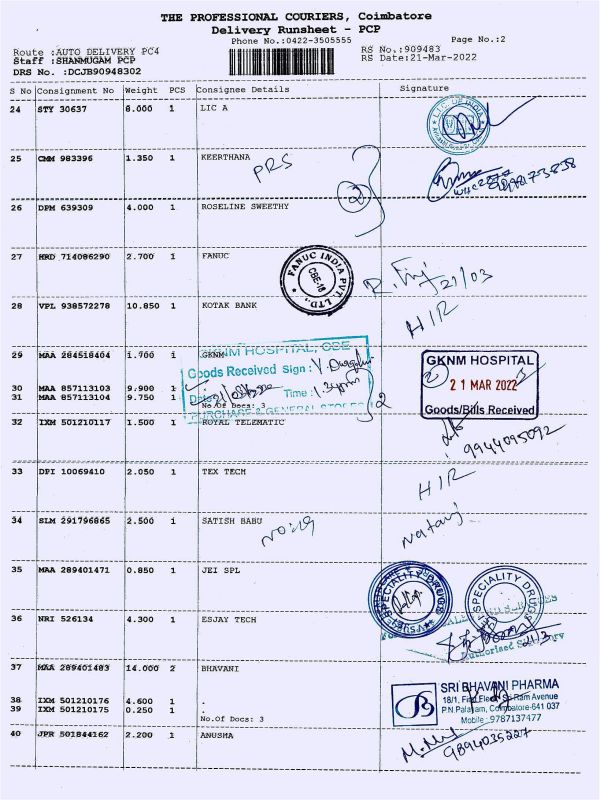 THE PROFESSIONAL COURIERS, Coimbatore
Delivery Runsheet - PCP
Phone No.:0422-3505555
Page No.:2
Route :AUTO DELIVERY PC4
RS No.:909483
Staff :SHANMUGAM PCP
RS Date:21-Mar-2022
DRS No. :DCJB90948302
S No Consignment No Weight PCS Consignee Details Signature
24 STY 30637 6.000 1 LIC A
25 CMM 983396 1.350 1 KEERTHANA
PRS
2
26 DPM 639309 4.000 1 ROSELINE SWEETHY
27 HRD 714086290 2.700 1 FANUC
FANUC INDIA PVT. LTD.,
CBE-18
21/03
28 VPL 938572278 10.850 1 KOTAK BANK
HIR
29 MAA 284518404 1.700 1 GKNM
GKNM HOSPITAL, CBE
Goods Received Sign :
30 MAA 857113103 9.900 1
31 MAA 857113104 9.750 1
Date: Time :
No.Of Docs: 3
PURCHASE & GENERAL STORES
2
GKNM HOSPITAL
21 MAR 2022
Goods/Bills Received
32 IXM 501210117 1.500 1 ROYAL TELEMATIC
9944095092
33 DPI 10069410 2.050 1 TEX TECH
HIR
34 SLM 291796865 2.500 1 SATISH BABU
NO:19
Nataraj
35 MAA 289401471 0.850 1 JEI SPL
SPECIALITY DRUGS
36 NRI 526134 4.300 1 ESJAY TECH
Authorised Signatory
37 MAA 289401483 14.000 2 BHAVANI
38 IXM 501210176 4.600 1 .
39 IXM 501210175 0.250 1 .
No.Of Docs: 3
SRI BHAVANI PHARMA
18/1, First Floor, Sri Ram Avenue
P.N.Palayam, Coimbatore-641 037
Mobile : 9787137477
40 JPR 501844162 2.200 1 ANUSHA
9894035227